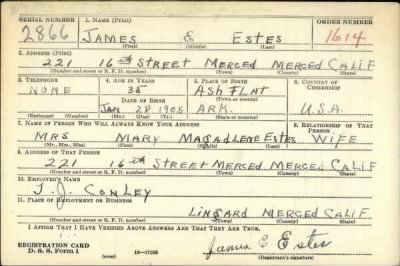 SERIAL NUMBER 1. NAME (Print) ORDER NUMBER
2866 JAMES E ESTES 1614
(First) (Middle) (Last)
2. ADDRESS (Print)
221 16th STREET MERCED MERCED CALIF
(Number and street or R. F. D. number) (Town) (County) (State)
3. TELEPHONE 4. AGE IN YEARS 5. PLACE OF BIRTH 6. COUNTRY OF CITIZENSHIP
NONE 35 ASH FLAT
DATE OF BIRTH (Town or county)
JAN 28 1905 ARK. U.S.A.
(Exchange) (Number) (Mo.) (Day) (Yr.) (State or country)
7. NAME OF PERSON WHO WILL ALWAYS KNOW YOUR ADDRESS 8. RELATIONSHIP OF THAT PERSON
MRS MARY MAGADLENE ESTES WIFE
(Mr., Mrs., Miss) (First) (Middle) (Last)
9. ADDRESS OF THAT PERSON
221 16th STREET MERCED MERCED CALIF
(Number and street or R. F. D. number) (Town) (County) (State)
10. EMPLOYER'S NAME
J. J. CONLEY
11. PLACE OF EMPLOYMENT OR BUSINESS
MERCED CALIF
(Number and street or R. F. D. number) (Town) (County) (State)
I AFFIRM THAT I HAVE VERIFIED ABOVE ANSWERS AND THAT THEY ARE TRUE.
REGISTRATION CARD James E Estes
D. S. S. Form 1 (over) (Registrant's signature)